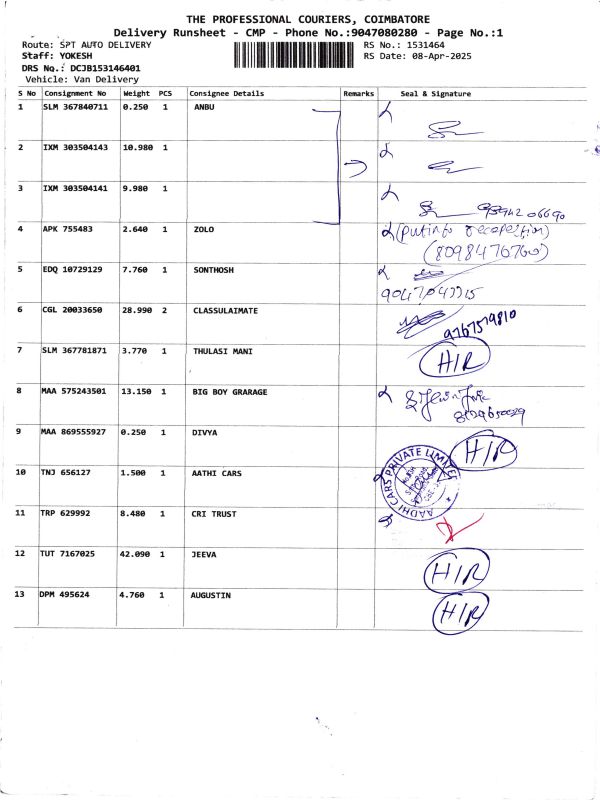 THE PROFESSIONAL COURIERS, COIMBATORE
Delivery Runsheet - CMP - Phone No.:9047080280 - Page No.:1
Route: SPT AUTO DELIVERY
RS No.: 1531464
Staff: YOKESH
RS Date: 08-Apr-2025
DRS No.: DCJB153146401
Vehicle: Van Delivery
S No Consignment No Weight PCS Consignee Details Remarks Seal & Signature
1 SLM 367840711 0.250 1 ANBU
2 IXM 303504143 10.980 1
3 IXM 303504141 9.980 1
4 APK 755483 2.640 1 ZOLO
(8098476760)
5 EDQ 10729129 7.760 1 SONTHOSH
6 CGL 20033650 28.990 2 CLASSULAIMATE
9767579810
7 SLM 367781871 3.770 1 THULASI MANI
H/R
8 MAA 575243501 13.150 1 BIG BOY GRARAGE
9 MAA 869555927 0.250 1 DIVYA
H/R
10 TNJ 656127 1.500 1 AATHI CARS
AADHI CARS PRIVATE LIMITED
11 TRP 629992 8.480 1 CRI TRUST
12 TUT 7167025 42.090 1 JEEVA
H/R
13 DPM 495624 4.760 1 AUGUSTIN
H/R